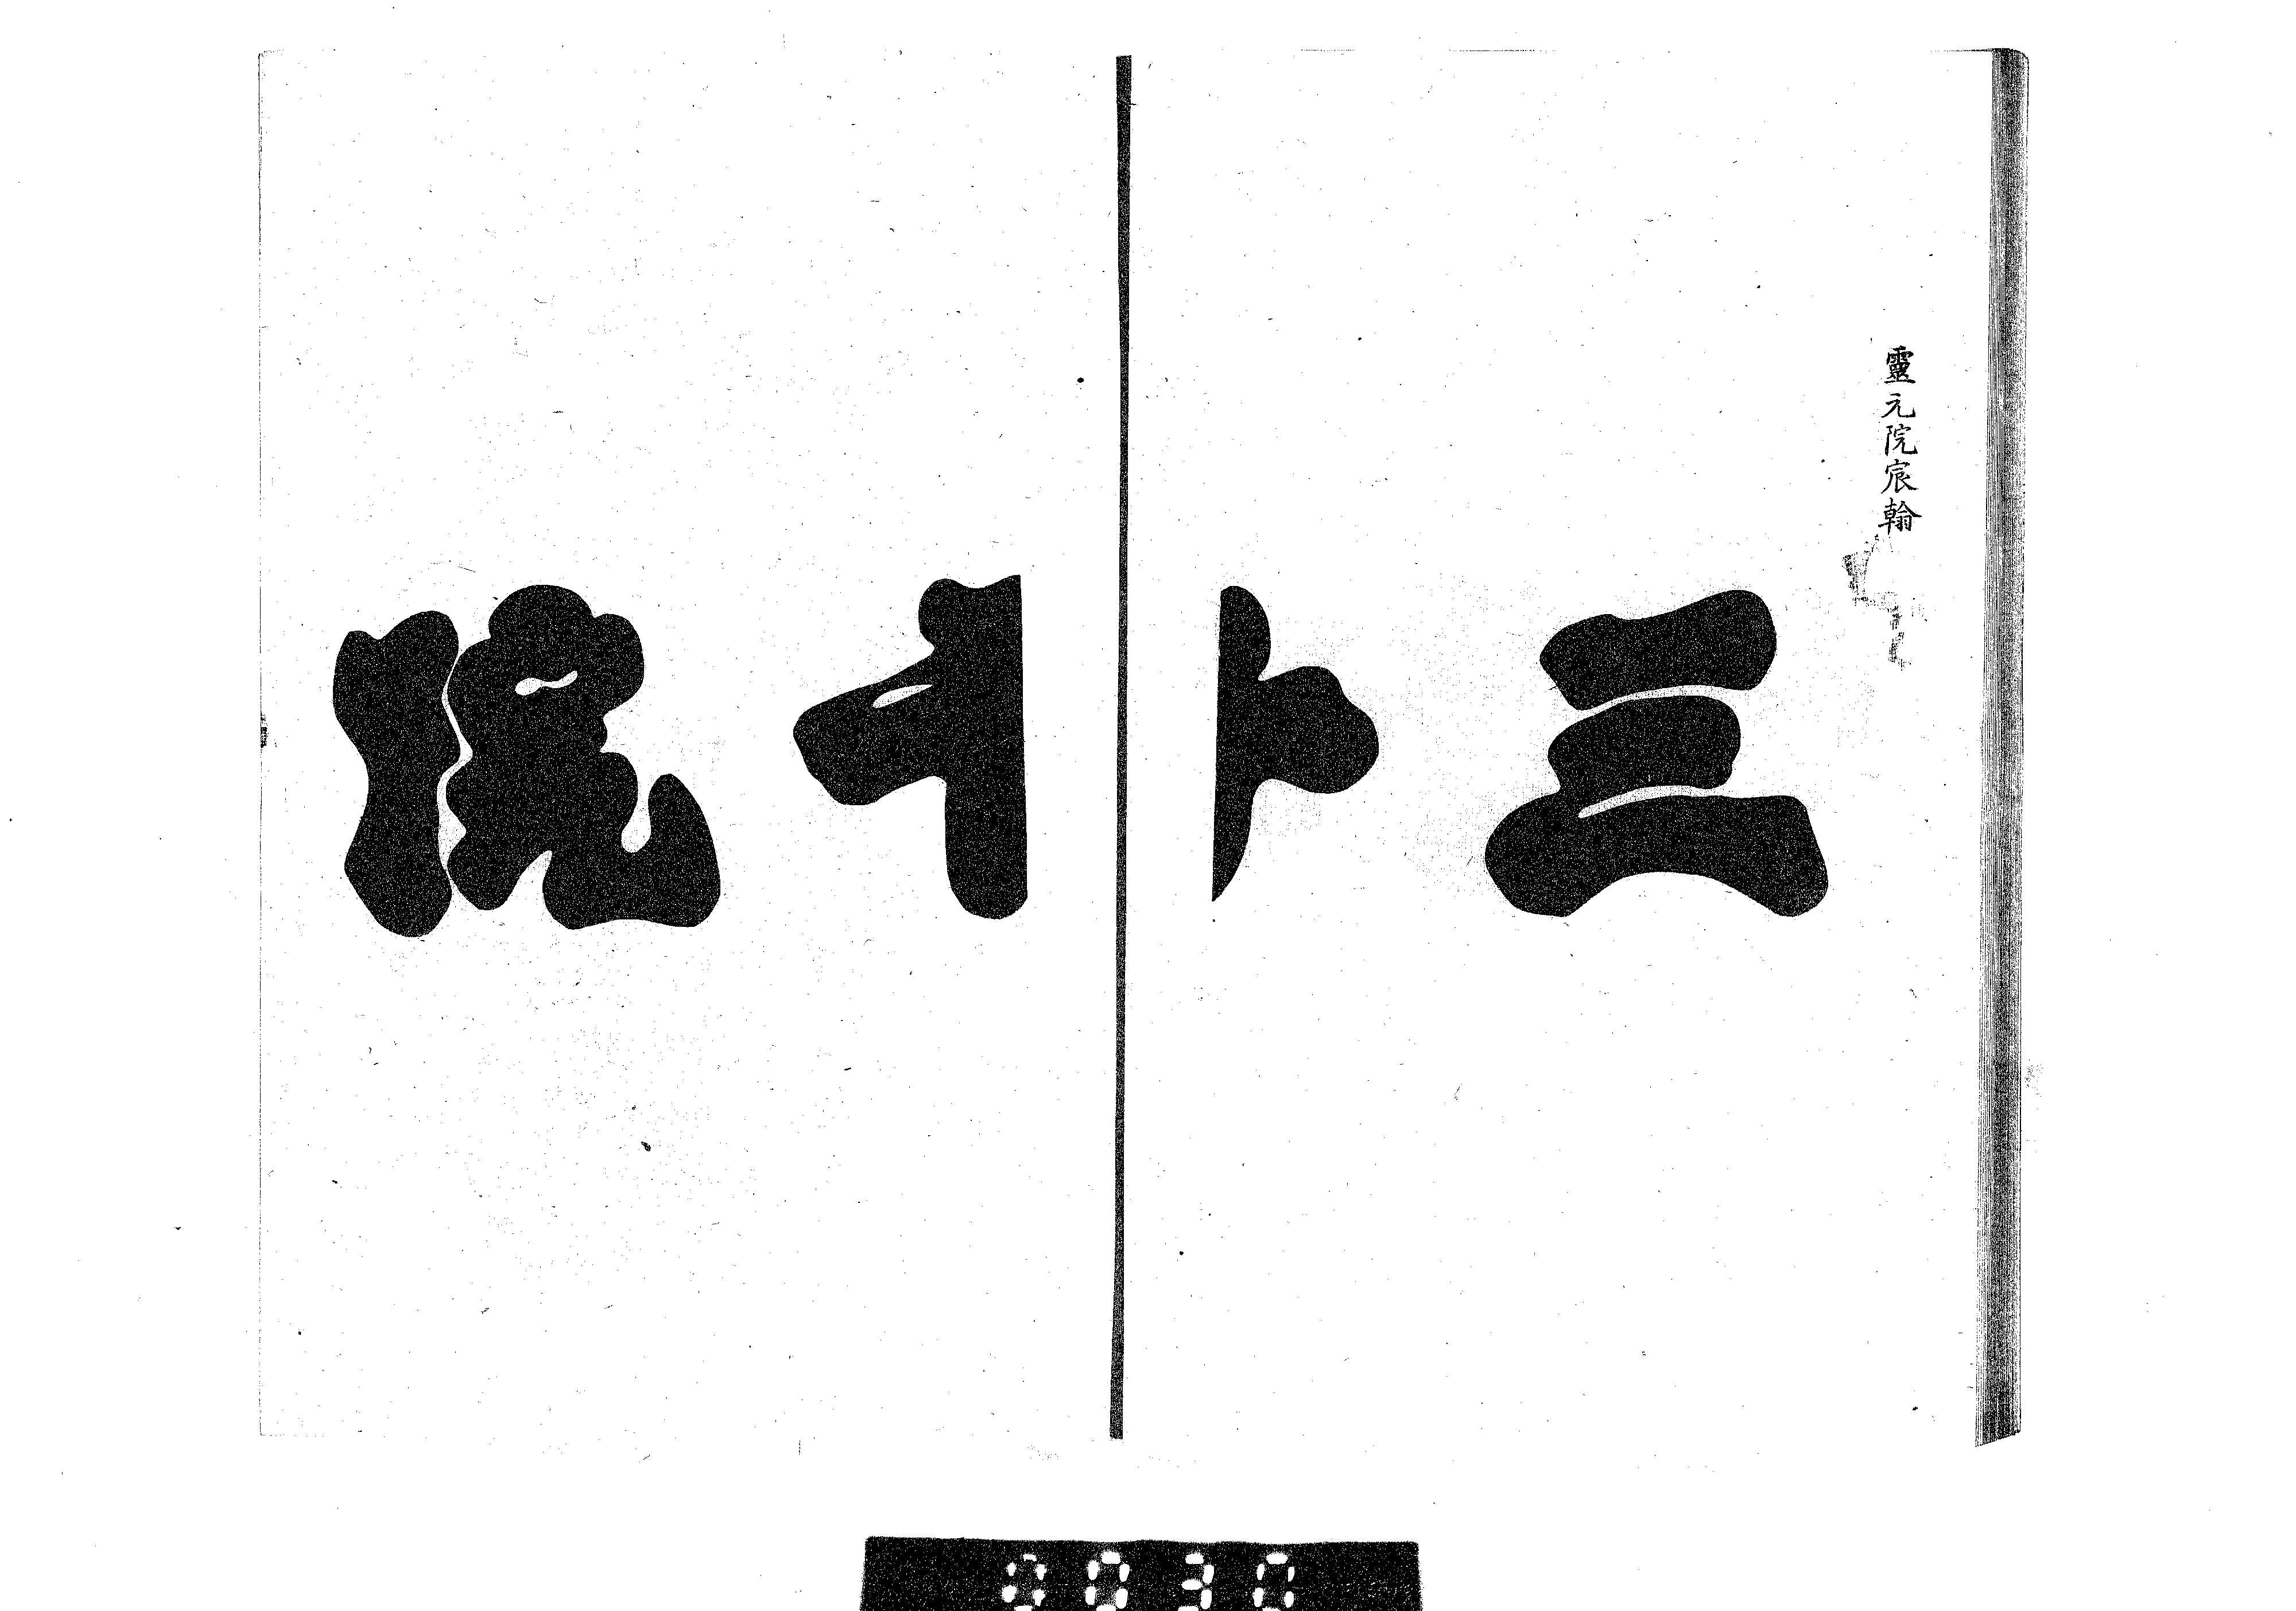 靈元院宸翰
三十院
0030